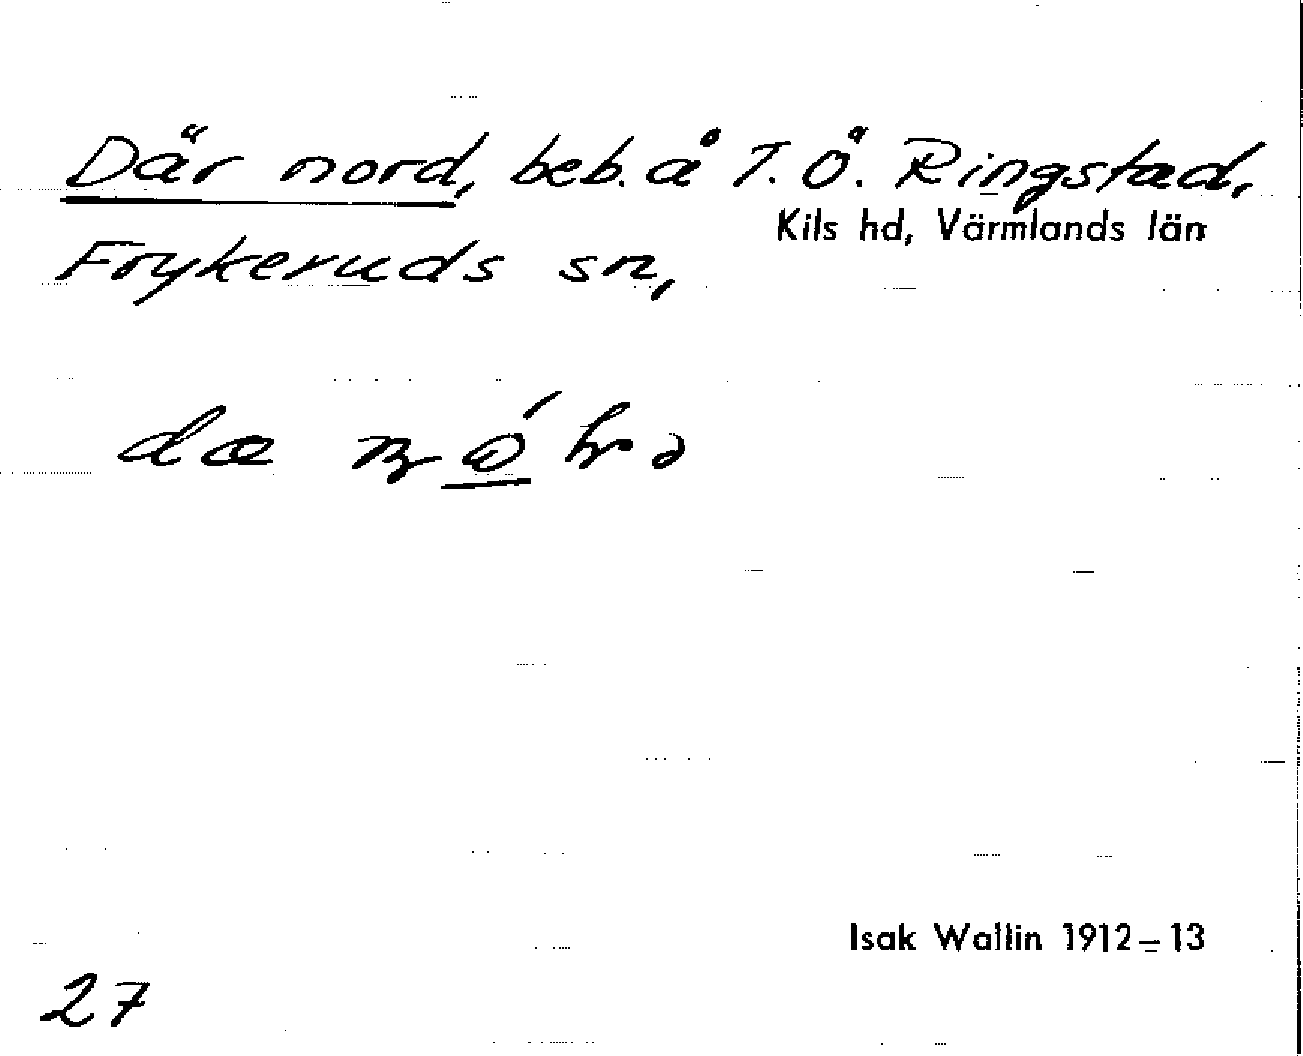 Där nord, beb. å T. Ö. Ringstad,
Kils hd, Värmlands län
Frykeruds sn,
Isak Wallin 1912–13
27